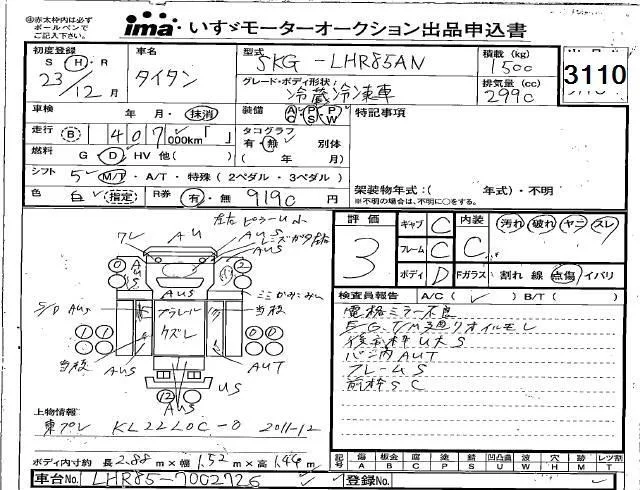 ④赤太枠内は必ず
ボールペンで
ご記入下さい。
ima いすゞモーターオークション出品申込書
初度登録 S H・R 23/12月
車名 タイタン
型式 SKG-LHR85AN
積載(kg) 1500
3110
グレード・ボディ形状 冷蔵冷凍車
排気量(cc) 2990
車検 年 月・抹消
装備 AC PS PW
特記事項
走行 B 1 407 000km「 」
タコグラフ 有・無
( 年 月)
燃料 G・D・HV 他( )
シフト 5 M/T・A/T・特殊(2ペダル・3ペダル)
架装物年式:( 年式)・不明
※不明の場合は、不明に○をする。
色 白 指定 R券 有・無 9190円
評価 3
キャブ C
内装 C
汚れ・破れ・ヤニ・スレ
フレーム C
ボディ D
Fガラス 割れ 線 点傷 イバリ
検査員報告 A/C( ) B/T( )
電格ミラー不良
E-G, T/M廻りオイルモレ
後右枠U大S
バン内AUT
フレームS
前枠SC
ワレ AU
左右ピラーU小
レンズガタ左右
0 AUS
2
AUS
S/D AUS
当板
プラレール
クズレ
当板
1 1
AUS
AUT
12
AUS
US
上物情報
東プレ KL22L0C-0 2011-12
ボディ内寸約 長2.88m×幅1.52m×高1.46m
記号 傷 板金 腐 塗 錆 凹凸曲 波 穴 跡 レツ割
A B C P S U W H M T
車台No. LHR85-7002726
登録No.